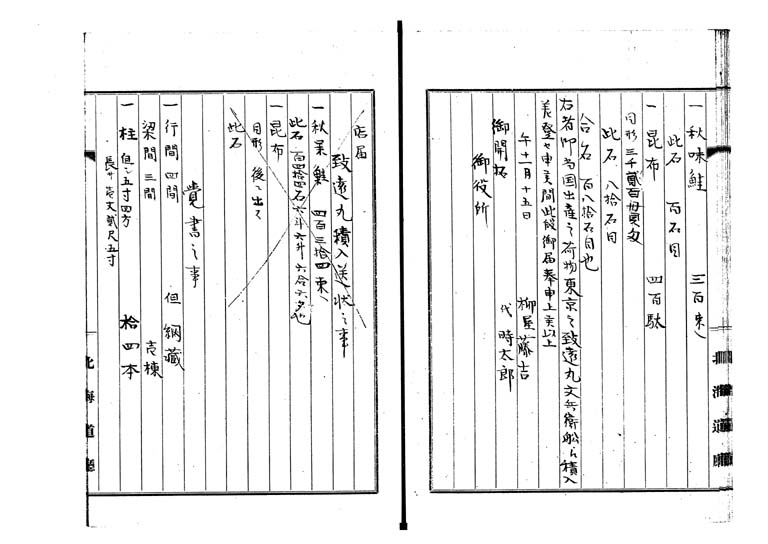 一 秋味鮭 三百束
此石 百石目
一 昆布 四百駄
目形 三千貳百貫目
此石 八拾石目
合石 百八拾石目也
右者 御国出産之荷物東京之致遠丸文兵衛船積入
差登セ申 間此段御届奉申上候以上
午十一月十五日 柳屋藤吉
代 時太郎
御開拓
御役所
北海道廳
店届
致遠丸積入送状之事
一 秋 鮭 四百三拾四束
此石 百四拾四石六斗六升六合六夕
一 昆布
目形 後ニ出ス
此石
覚書之事
一 行間 四間 但 網蔵
梁間 三間 壱棟
一 柱 但シ五寸四方 拾四本
長サ壱丈貳尺五寸
北海道廳